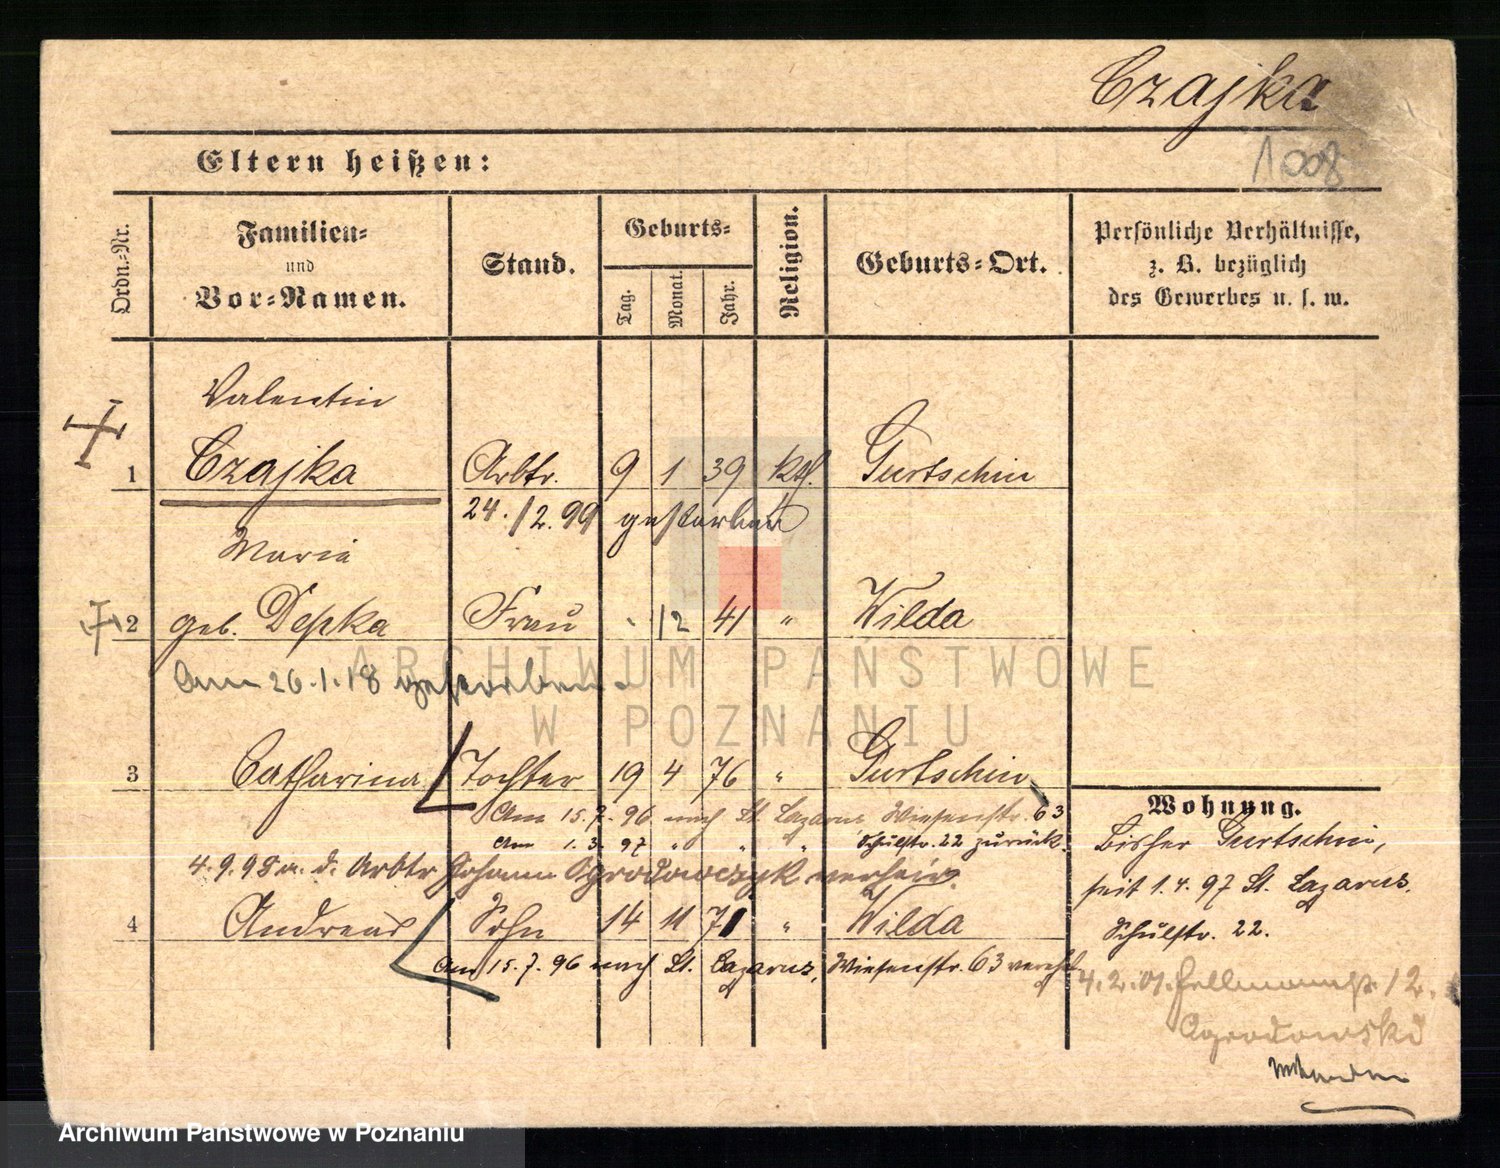 Czajka
1008
Eltern heißen:
Ordn.-Nr.
Familien-
und
Vor-Namen.
Stand.
Geburts-
Tag.
Monat.
Jahr.
Religion.
Geburts-Ort.
Persönliche Verhältnisse,
z. B. bezüglich
des Gewerbes u. s. w.
Valentin
1 Czajka Arbtr. 9 1 39 kth. Gurtschin
24./2.99 gestorben
Maria
2 geb. Depka Frau 12 41 " Wilda
Am 26.1.18 gestorben.
3 Catharina Tochter 19 4 76 " Gurtschin
Am 15.7.96 nach St. Lazarus Wiesenstr. 63
Am 1.3.97 " " " Schulstr. 22 zurück.
4.9.98 m. d. Arbtr Johann Ogrodowczyk verheir.
4 Andreas Sohn 14 11 71 " Wilda
Am 15.7.96 nach St. Lazarus, Wiesenstr. 63
Wohnung.
Bisher Gurtschin,
seit 1.4.97 St. Lazarus.
Schulstr. 22.
4.2.01. 12.
Ogrodowski
ARCHIWUM PAŃSTWOWE
W POZNANIU
Archiwum Państwowe w Poznaniu